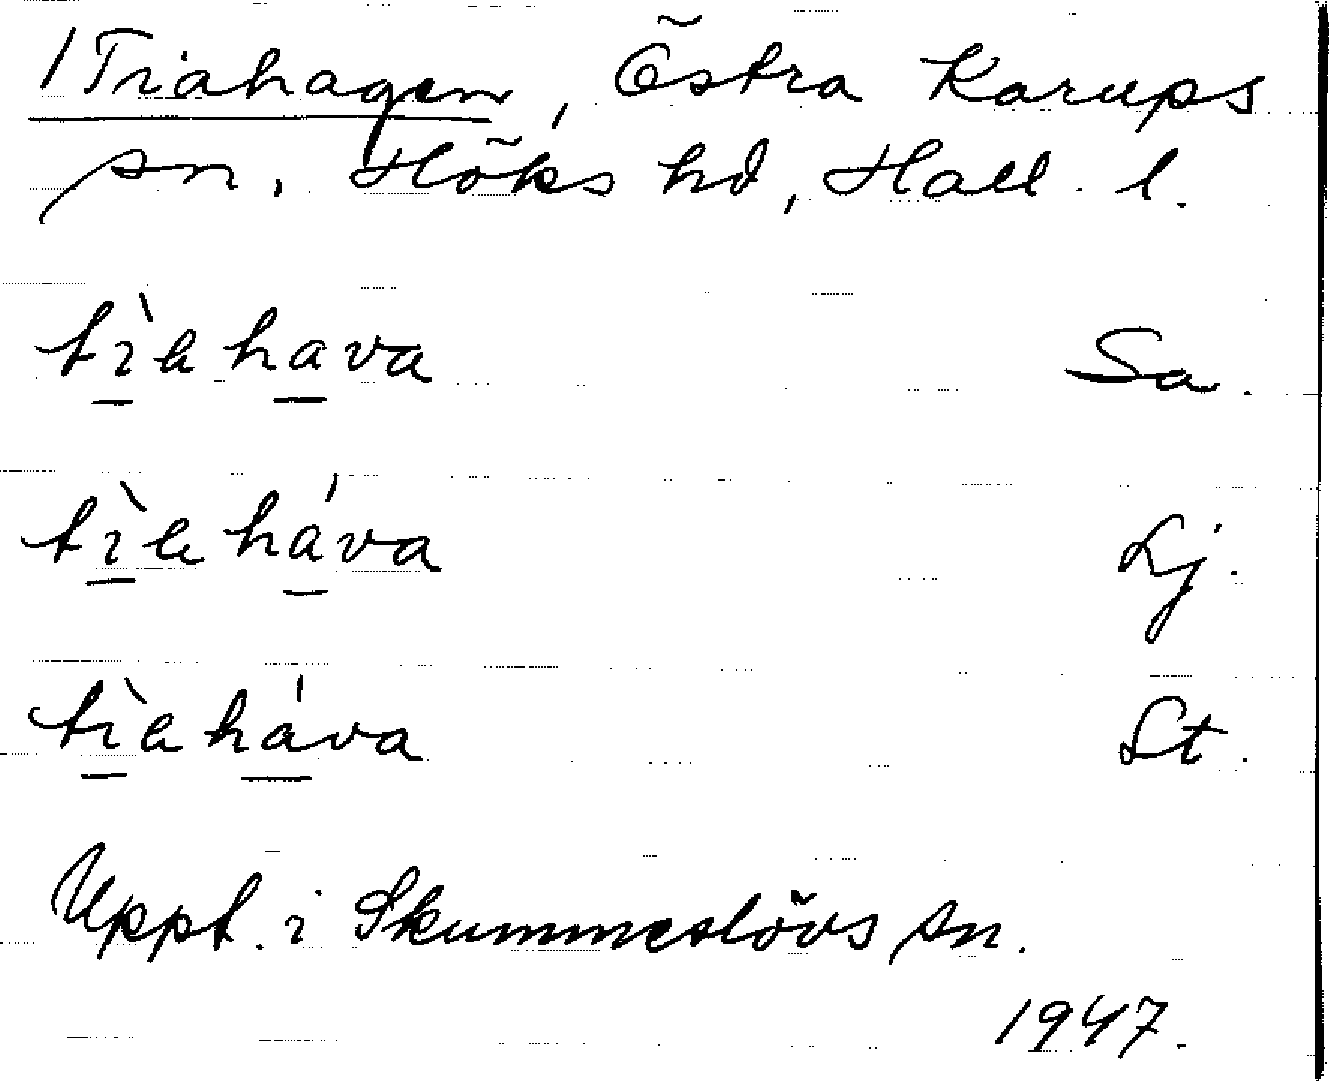 / Triahagen, Östra Karups
sn. Höks hd, Hall. l.
tìahava Sa.
tìaháva Lj.
tìaháva St.
Uppt. i Skummeslövs sn.
1947.